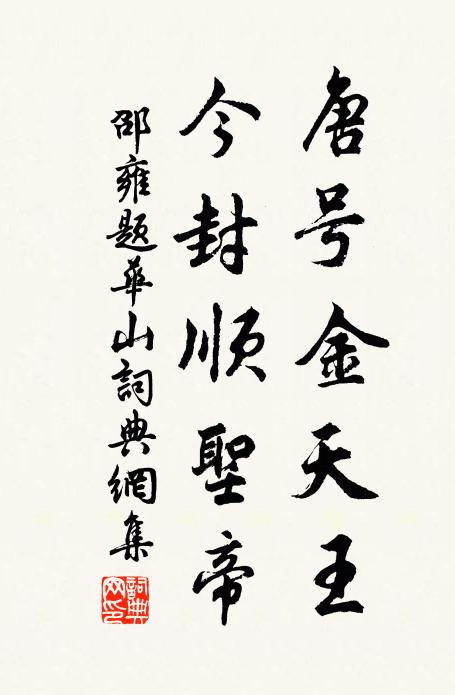 唐号金天王
今封顺聖帝
邵雍题華山詞典網集
詞典网印